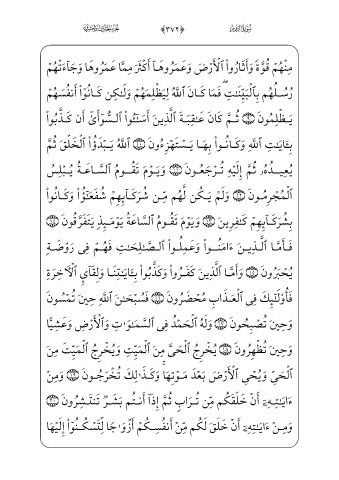 سُورَةُ الرُّومِ ﴿٣٧٢﴾ الجزء الحادي والعشرون
مِنْهُمْ قُوَّةً وَأَثَارُوا۟ ٱلْأَرْضَ وَعَمَرُوهَآ أَكْثَرَ مِمَّا عَمَرُوهَا وَجَآءَتْهُمْ
رُسُلُهُم بِٱلْبَيِّنَٰتِ ۖ فَمَا كَانَ ٱللَّهُ لِيَظْلِمَهُمْ وَلَٰكِن كَانُوٓا۟ أَنفُسَهُمْ
يَظْلِمُونَ ۝ ثُمَّ كَانَ عَٰقِبَةَ ٱلَّذِينَ أَسَٰٓـُٔوا۟ ٱلسُّوٓأَىٰٓ أَن كَذَّبُوا۟
بِـَٔايَٰتِ ٱللَّهِ وَكَانُوا۟ بِهَا يَسْتَهْزِءُونَ ۝ ٱللَّهُ يَبْدَؤُا۟ ٱلْخَلْقَ ثُمَّ
يُعِيدُهُۥ ثُمَّ إِلَيْهِ تُرْجَعُونَ ۝ وَيَوْمَ تَقُومُ ٱلسَّاعَةُ يُبْلِسُ
ٱلْمُجْرِمُونَ ۝ وَلَمْ يَكُن لَّهُم مِّن شُرَكَآئِهِمْ شُفَعَٰٓؤُا۟ وَكَانُوا۟
بِشُرَكَآئِهِمْ كَٰفِرِينَ ۝ وَيَوْمَ تَقُومُ ٱلسَّاعَةُ يَوْمَئِذٍ يَتَفَرَّقُونَ ۝
فَأَمَّا ٱلَّذِينَ ءَامَنُوا۟ وَعَمِلُوا۟ ٱلصَّٰلِحَٰتِ فَهُمْ فِى رَوْضَةٍ
يُحْبَرُونَ ۝ وَأَمَّا ٱلَّذِينَ كَفَرُوا۟ وَكَذَّبُوا۟ بِـَٔايَٰتِنَا وَلِقَآئِ ٱلْـَٔاخِرَةِ
فَأُو۟لَٰٓئِكَ فِى ٱلْعَذَابِ مُحْضَرُونَ ۝ فَسُبْحَٰنَ ٱللَّهِ حِينَ تُمْسُونَ
وَحِينَ تُصْبِحُونَ ۝ وَلَهُ ٱلْحَمْدُ فِى ٱلسَّمَٰوَٰتِ وَٱلْأَرْضِ وَعَشِيًّا
وَحِينَ تُظْهِرُونَ ۝ يُخْرِجُ ٱلْحَىَّ مِنَ ٱلْمَيِّتِ وَيُخْرِجُ ٱلْمَيِّتَ مِنَ
ٱلْحَىِّ وَيُحْىِ ٱلْأَرْضَ بَعْدَ مَوْتِهَا ۚ وَكَذَٰلِكَ تُخْرَجُونَ ۝ وَمِنْ
ءَايَٰتِهِۦٓ أَنْ خَلَقَكُم مِّن تُرَابٍ ثُمَّ إِذَآ أَنتُم بَشَرٌ تَنتَشِرُونَ ۝
وَمِنْ ءَايَٰتِهِۦٓ أَنْ خَلَقَ لَكُم مِّنْ أَنفُسِكُمْ أَزْوَٰجًا لِّتَسْكُنُوٓا۟ إِلَيْهَا